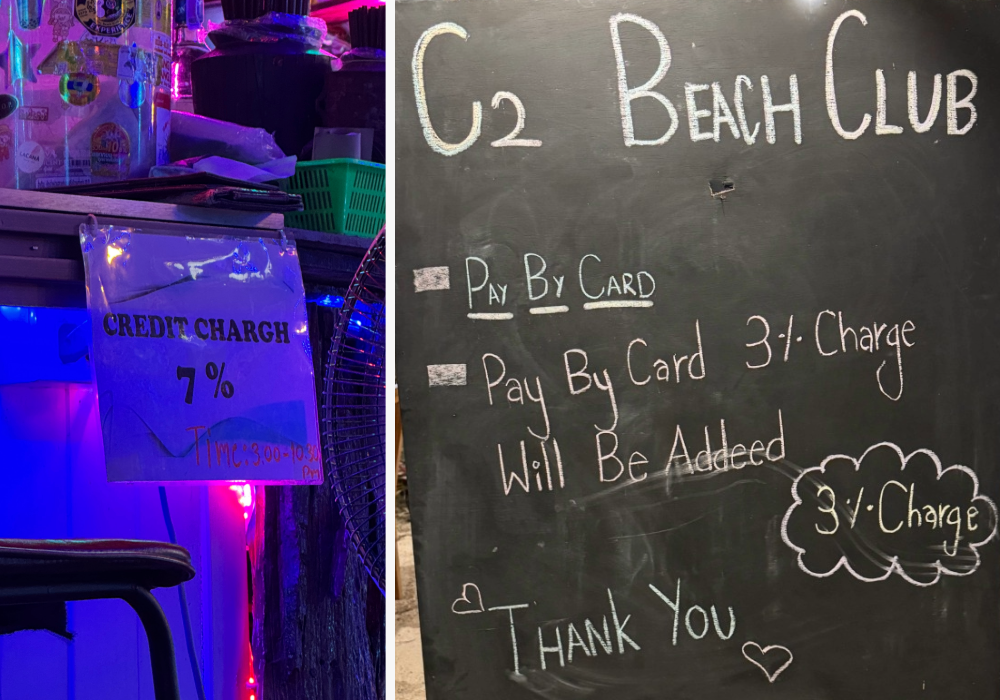 CREDIT CHARGH
7%
TIMC: 3.00-10:30
Pm
C2 BEACH CLUB
PAY BY CARD
Pay By Card 3% Charge
Will Be Addeed
3% Charge
THANK YOU